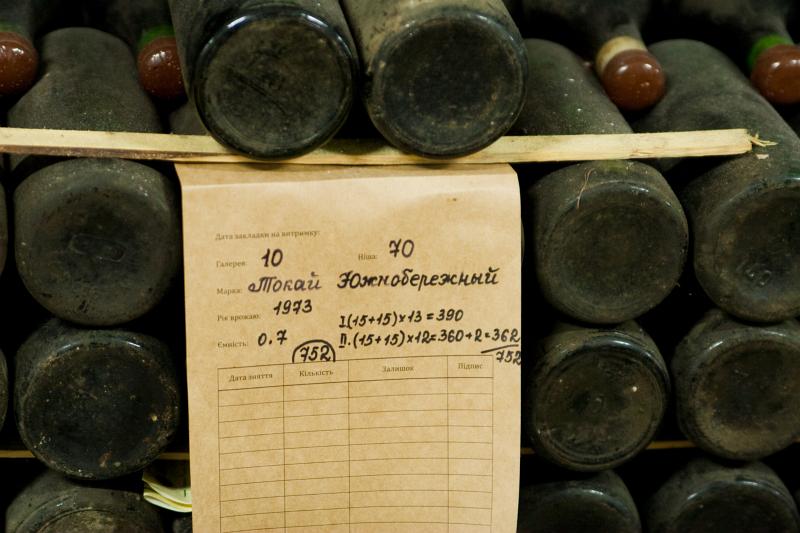 Дата закладки на витримку:
Галерея: 10 Ніша: 70
Марка: Токай Южнобережный
Рік врожаю: 1973
I(15+15)×13=390
Ємність: 0.7 II.(15+15)×12=360+2=362
752 752
Дата зняття Кількість Залишок Підпис